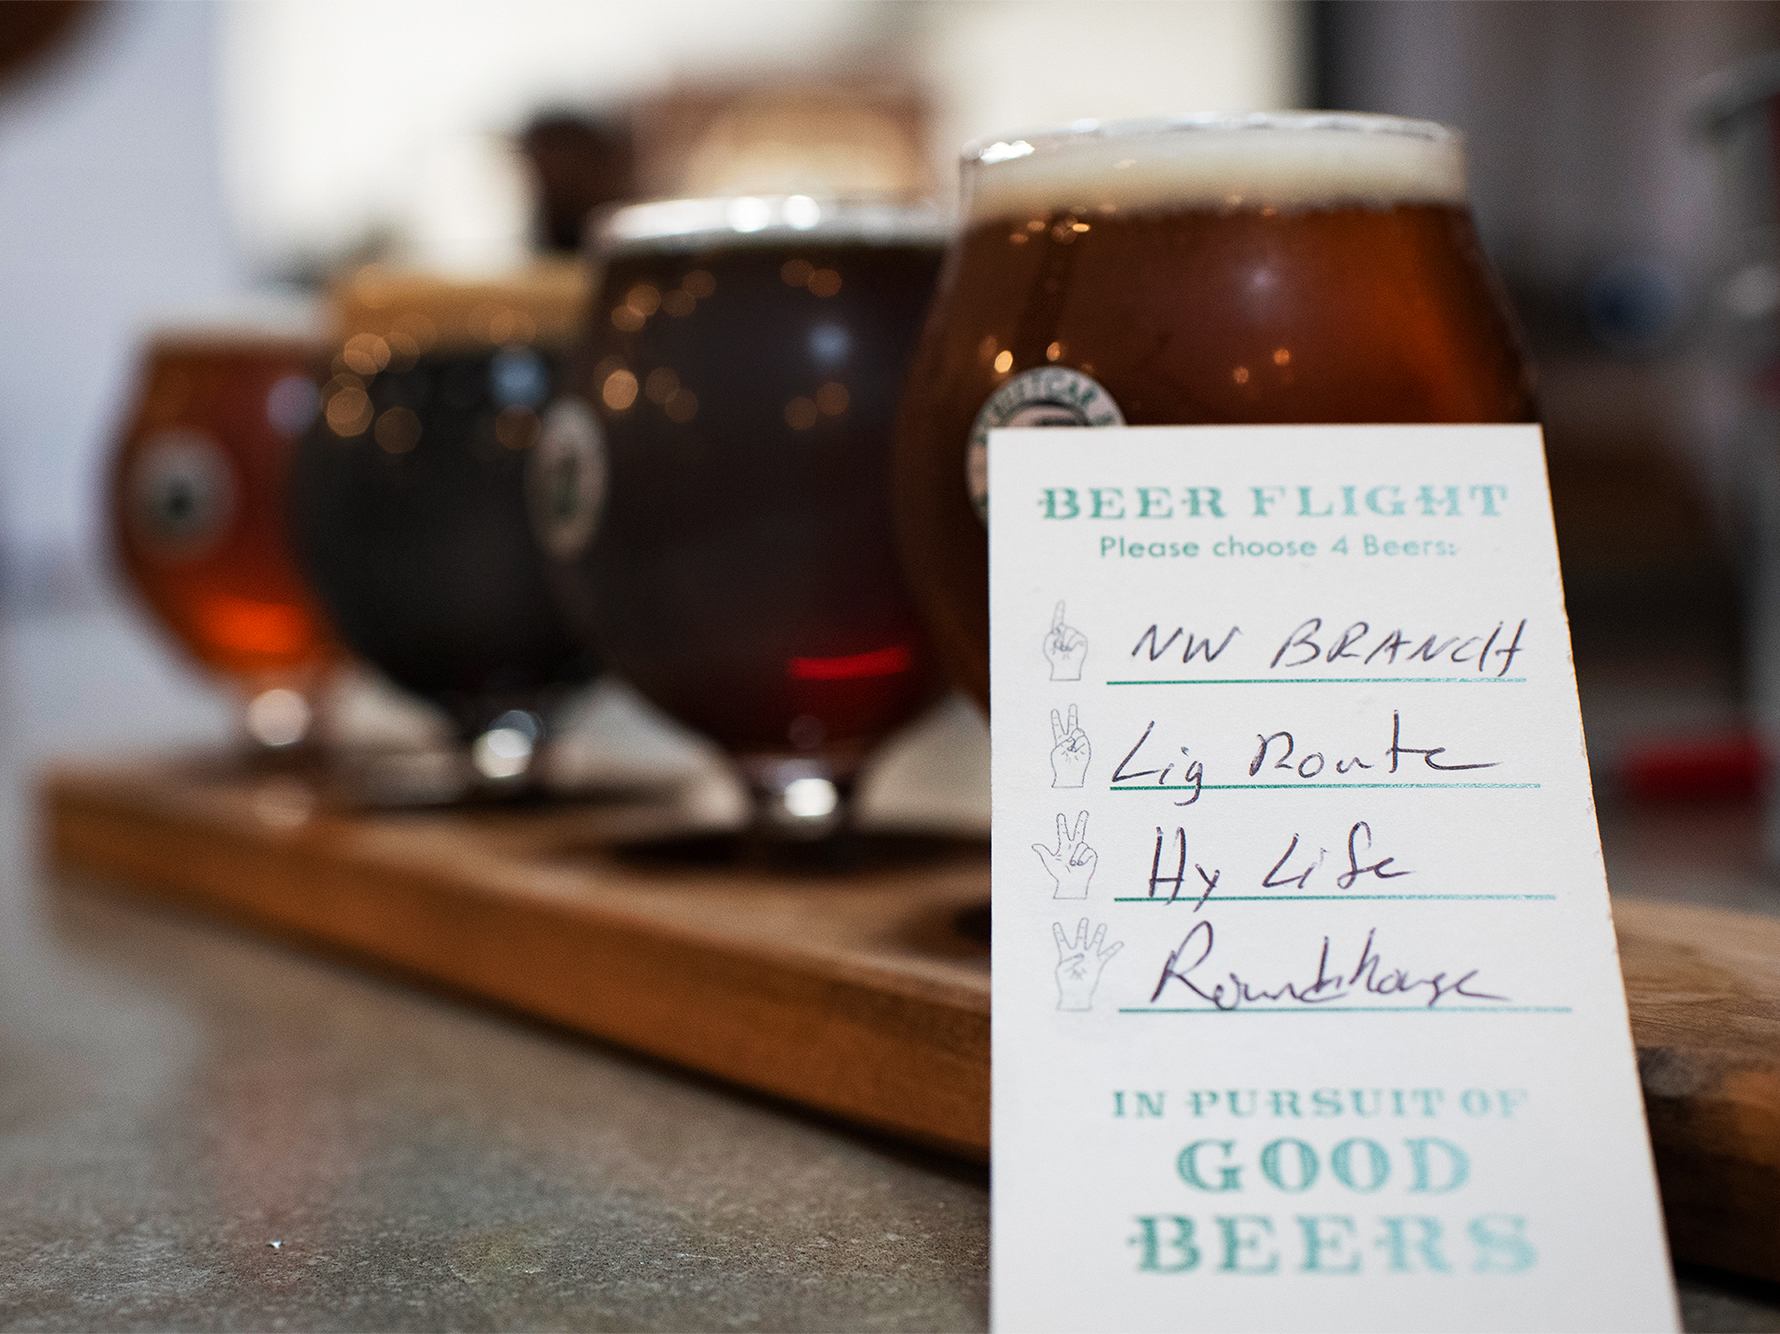 BEER FLIGHT
Please choose 4 Beers:
NW BRANCH
Lig Route
Hy Life
Roundhouse
IN PURSUIT OF
GOOD
BEERS